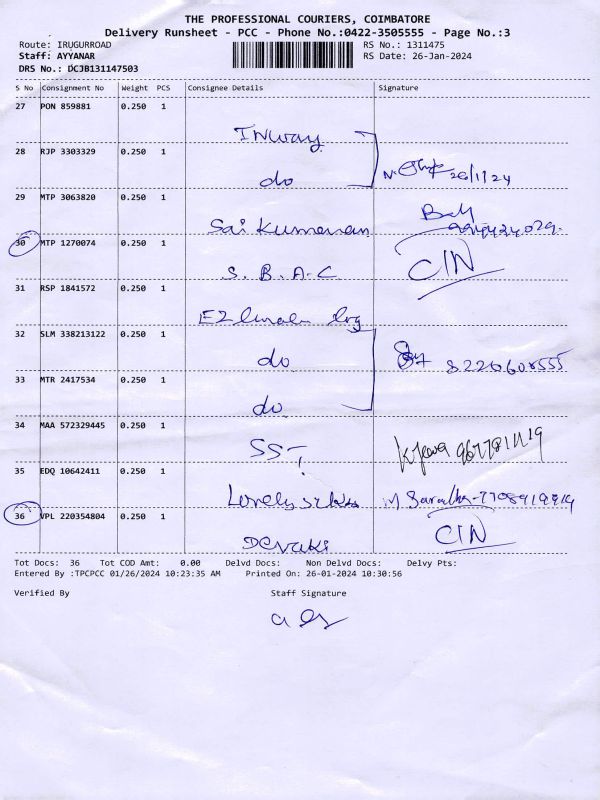 THE PROFESSIONAL COURIERS, COIMBATORE
Delivery Runsheet - PCC - Phone No.:0422-3505555 - Page No.:3
Route: IRUGURROAD RS No.: 1311475
Staff: AYYANAR RS Date: 26-Jan-2024
DRS No.: DCJB131147503
S No Consignment No Weight PCS Consignee Details Signature
27 PON 859881 0.250 1
INway
28 RJP 3303329 0.250 1
do 26/1/24
29 MTP 3063820 0.250 1
Sai Kumaran
30 MTP 1270074 0.250 1
S. B. A. C CIN
31 RSP 1841572 0.250 1
32 SLM 338213122 0.250 1
do 8220608555
33 MTR 2417534 0.250 1
do
34 MAA 572329445 0.250 1
SST
35 EDQ 10642411 0.250 1
Lovely M. Saratha
36 VPL 220354804 0.250 1
Devaki CIN
Tot Docs: 36 Tot COD Amt: 0.00 Delvd Docs: Non Delvd Docs: Delvy Pts:
Entered By :TPCPCC 01/26/2024 10:23:35 AM Printed On: 26-01-2024 10:30:56
Verified By Staff Signature